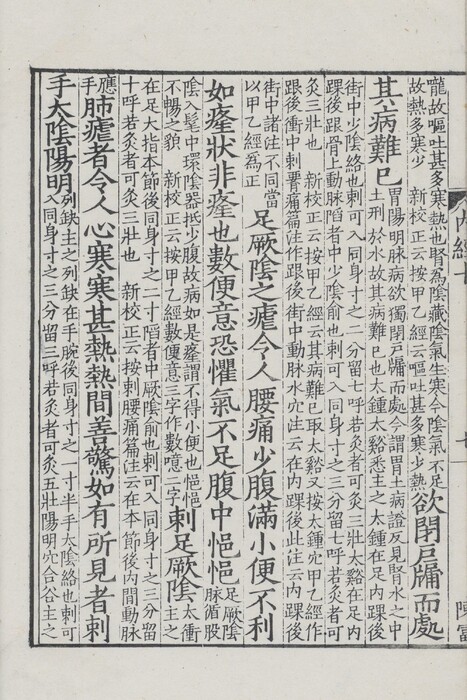 嚨故嘔吐甚多寒熱也腎爲陰藏陰氣生寒今陰氣不足
故熱多寒少　新校正云按甲乙經云嘔吐甚多寒少熱
欲閉戶牖而處
其病難已
胃陽明脉病欲獨閉戶牖而處今謂胃土病證反見腎水之中
土刑於水故其病難已也太鍾太谿悉主之太鍾在足内踝後
街中少陰絡也刺可入同身寸之二分留七呼若灸者可灸三壯太谿在足内
踝後跟骨上動脉陷者中少陰俞也刺可入同身寸之三分留七呼若灸者可
灸三壯也　新校正云按甲乙經云其病難已取太谿又按太鍾穴甲乙經作
跟後衝中刺腰痛篇注作跟後街中動脉水穴注云在内踝後此注云内踝後
街中諸注不同當
以甲乙經爲正
足厥陰之瘧令人腰痛少腹滿小便不利
如癃狀非癃也數便意恐懼氣不足腹中悒悒
足厥陰
脉循股
陰入髦中環陰器抵少腹故病如是癃謂不得小便也悒悒
不暢之貌　新校正云按甲乙經數便意三字作數噫二字
刺足厥陰
太衝
主之
在足大指本節後同身寸之二寸陷者中厥陰俞也刺可入同身寸之三分留
十呼若灸者可灸三壯也　新校正云按刺腰痛篇注云在本節後内間動脉
應
手
肺瘧者令人心寒寒甚熱熱間善驚如有所見者刺
手太陰陽明
列缺主之列缺在手腕後同身寸之一寸半手太陰絡也刺可
入同身寸之三分留三呼若灸者可灸五壯陽明穴合谷主之